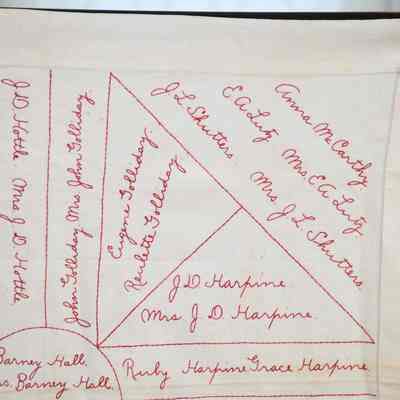 J D Hottle Mrs J D Hottle
John Golliday Mrs John Golliday
Eugene Golliday.
Raulette Golliday
J L Shutters Mrs. J. L. Shutters.
E A Lutz Mrs. E. A. Lutz.
Anna McCarthy.
J D Harpine
Mrs J D Harpine.
Barney Hall.
Barney Hall.
Ruby Harpine Grace Harpine